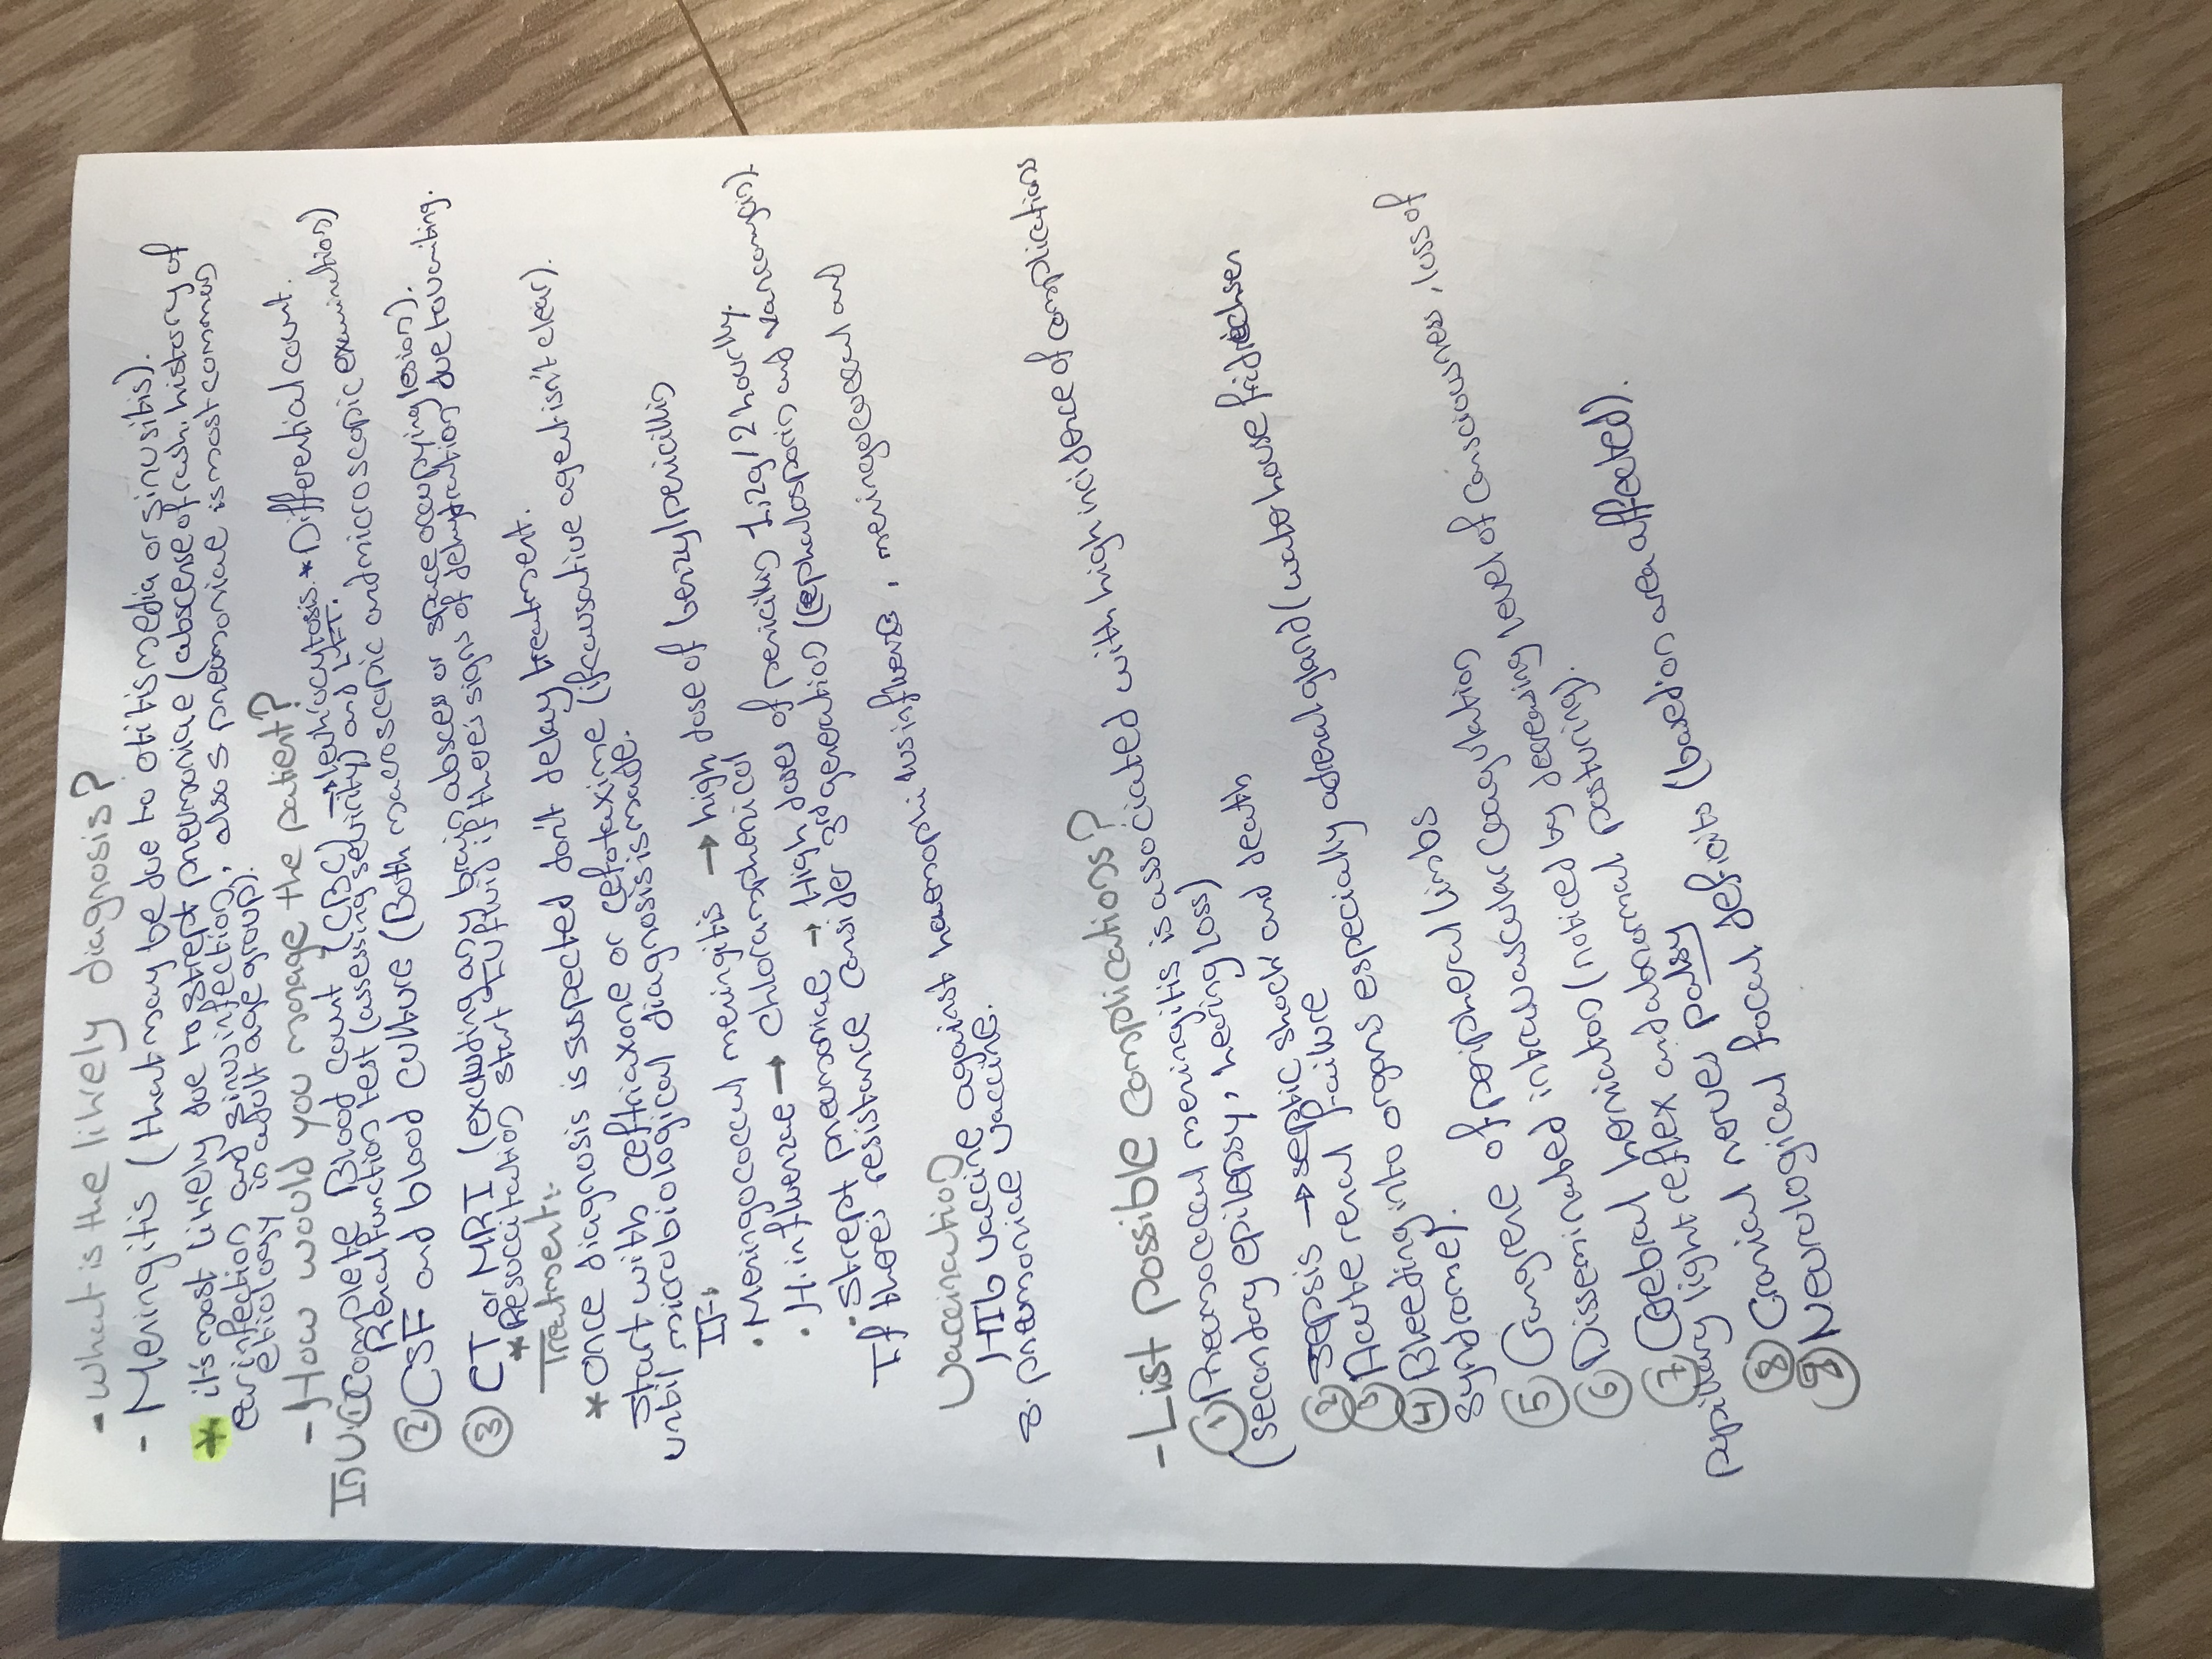 - What is the likely diagnosis?
- Meningitis (that may be due to otitis media or sinusitis).
* it's most likely due to strept pneumoniae (abscense of rash, history of
ear infection and sinus infection, also s pneumoniae is most common
etiology in adult age group).
- How would you manage the patient?
Inv: ① Complete Blood count (CBC) → leukocytosis. * Differential count.
Renal function test (assessing severity) and LFT.
② CSF and blood culture (Both macroscopic and microscopic examination)
③ CT or MRI (excluding any brain abscess or space occupying lesion).
* Resuscitation start IV fluid if theres signs of dehydration due to vomiting.
Treatment:
* Once diagnosis is suspected don't delay treatment.
Start with ceftriaxone or cefotaxime (if causative agent isn't clear).
until microbiological diagnosis is made.
IF:
• Meningococcal meningitis → high dose of benzylpenicillin
• H. influenzae → chloramphenicol
• Strept pneumoniae → High doses of penicillin 1.2g/2 hourly.
If theres resistance consider 3rd generation (cephalosporin and vancomycin).
Vaccination
HIb vaccine against haemophilus influenza, meningococcal and
s. pneumoniae vaccine.
- List possible complications?
① Pneumococcal meningitis is associated with high incidence of complications
(secondary epilepsy, hearing loss)
② Sepsis → septic shock and death
③ Acute renal failure
④ Bleeding into organs especially adrenal gland (waterhouse fridrichsen
syndrome).
⑤ Gangrene of peripheral limbs
⑥ Disseminated intravascular coagulation
⑦ Cerebral herniation (noticed by decreasing level of consciousness, loss of
pupillary light reflex and abnormal posturing).
⑧ Cranial nerves palsy
⑨ Neurological focal deficits (based on area affected).